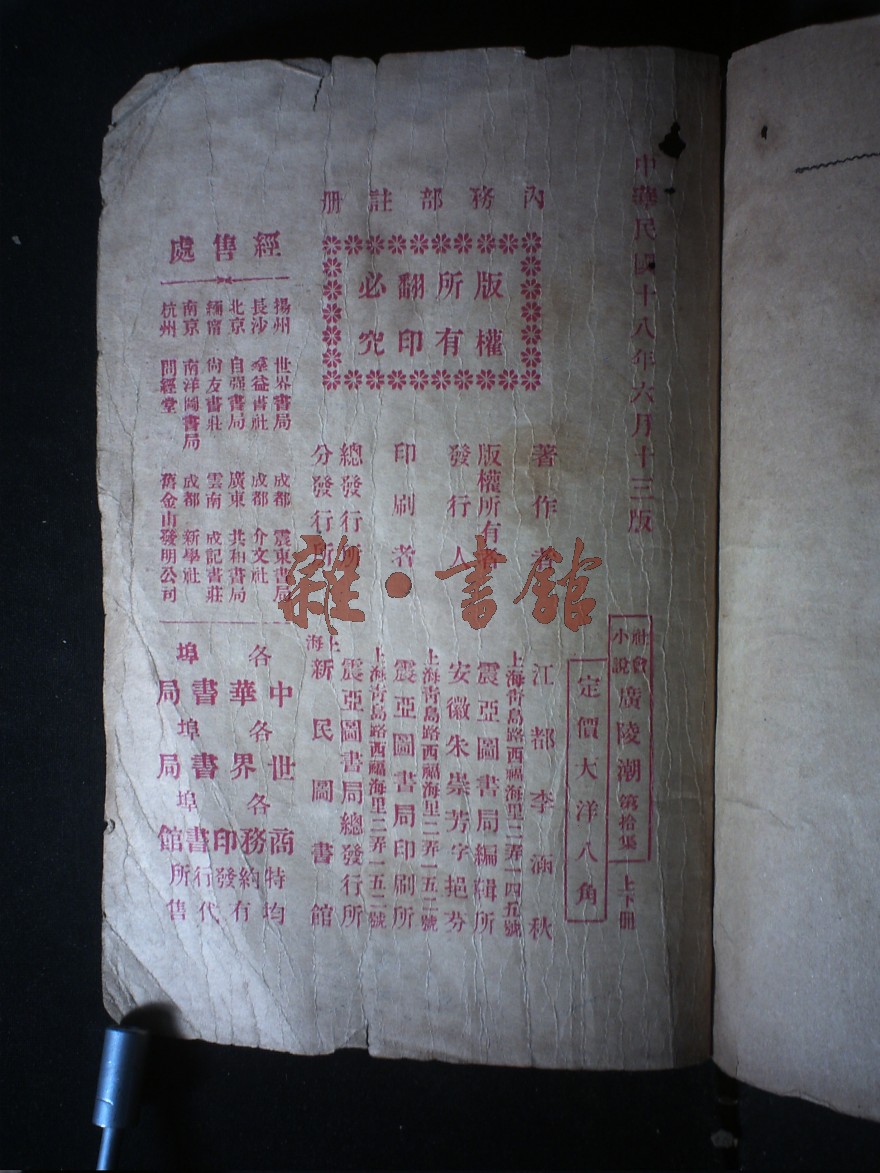 中華民國十八年六月十三版
社會小說 廣陵潮 第拾集 上下冊
定價大洋八角
內務部註冊
版權所有
翻印必究
著作者 江都李涵秋
上海靑島路西福海里二弄一四五號
版權所有者 震亞圖書局編輯所
發行人 安徽朱崇芳字挹芬
上海靑島路西福海里二弄一五二號
印刷者 震亞圖書局印刷所
上海靑島路西福海里二弄一五二號
總發行所 震亞圖書局總發行所
分發行所 上海新民圖書館
經售處
揚州 世界書局 成都 震東書局
長沙 羣益書社 成都 介文社
北京 自强書局 廣東 共和書局
緬甯 尙友書莊 雲南 成記書莊
南京 南洋圖書局 成都 新學社
杭州 問經堂 舊金山發明公司
各埠
中華書局
各埠
世界書局
各埠
商務印書館
特約發行所
均有代售
雜·書館